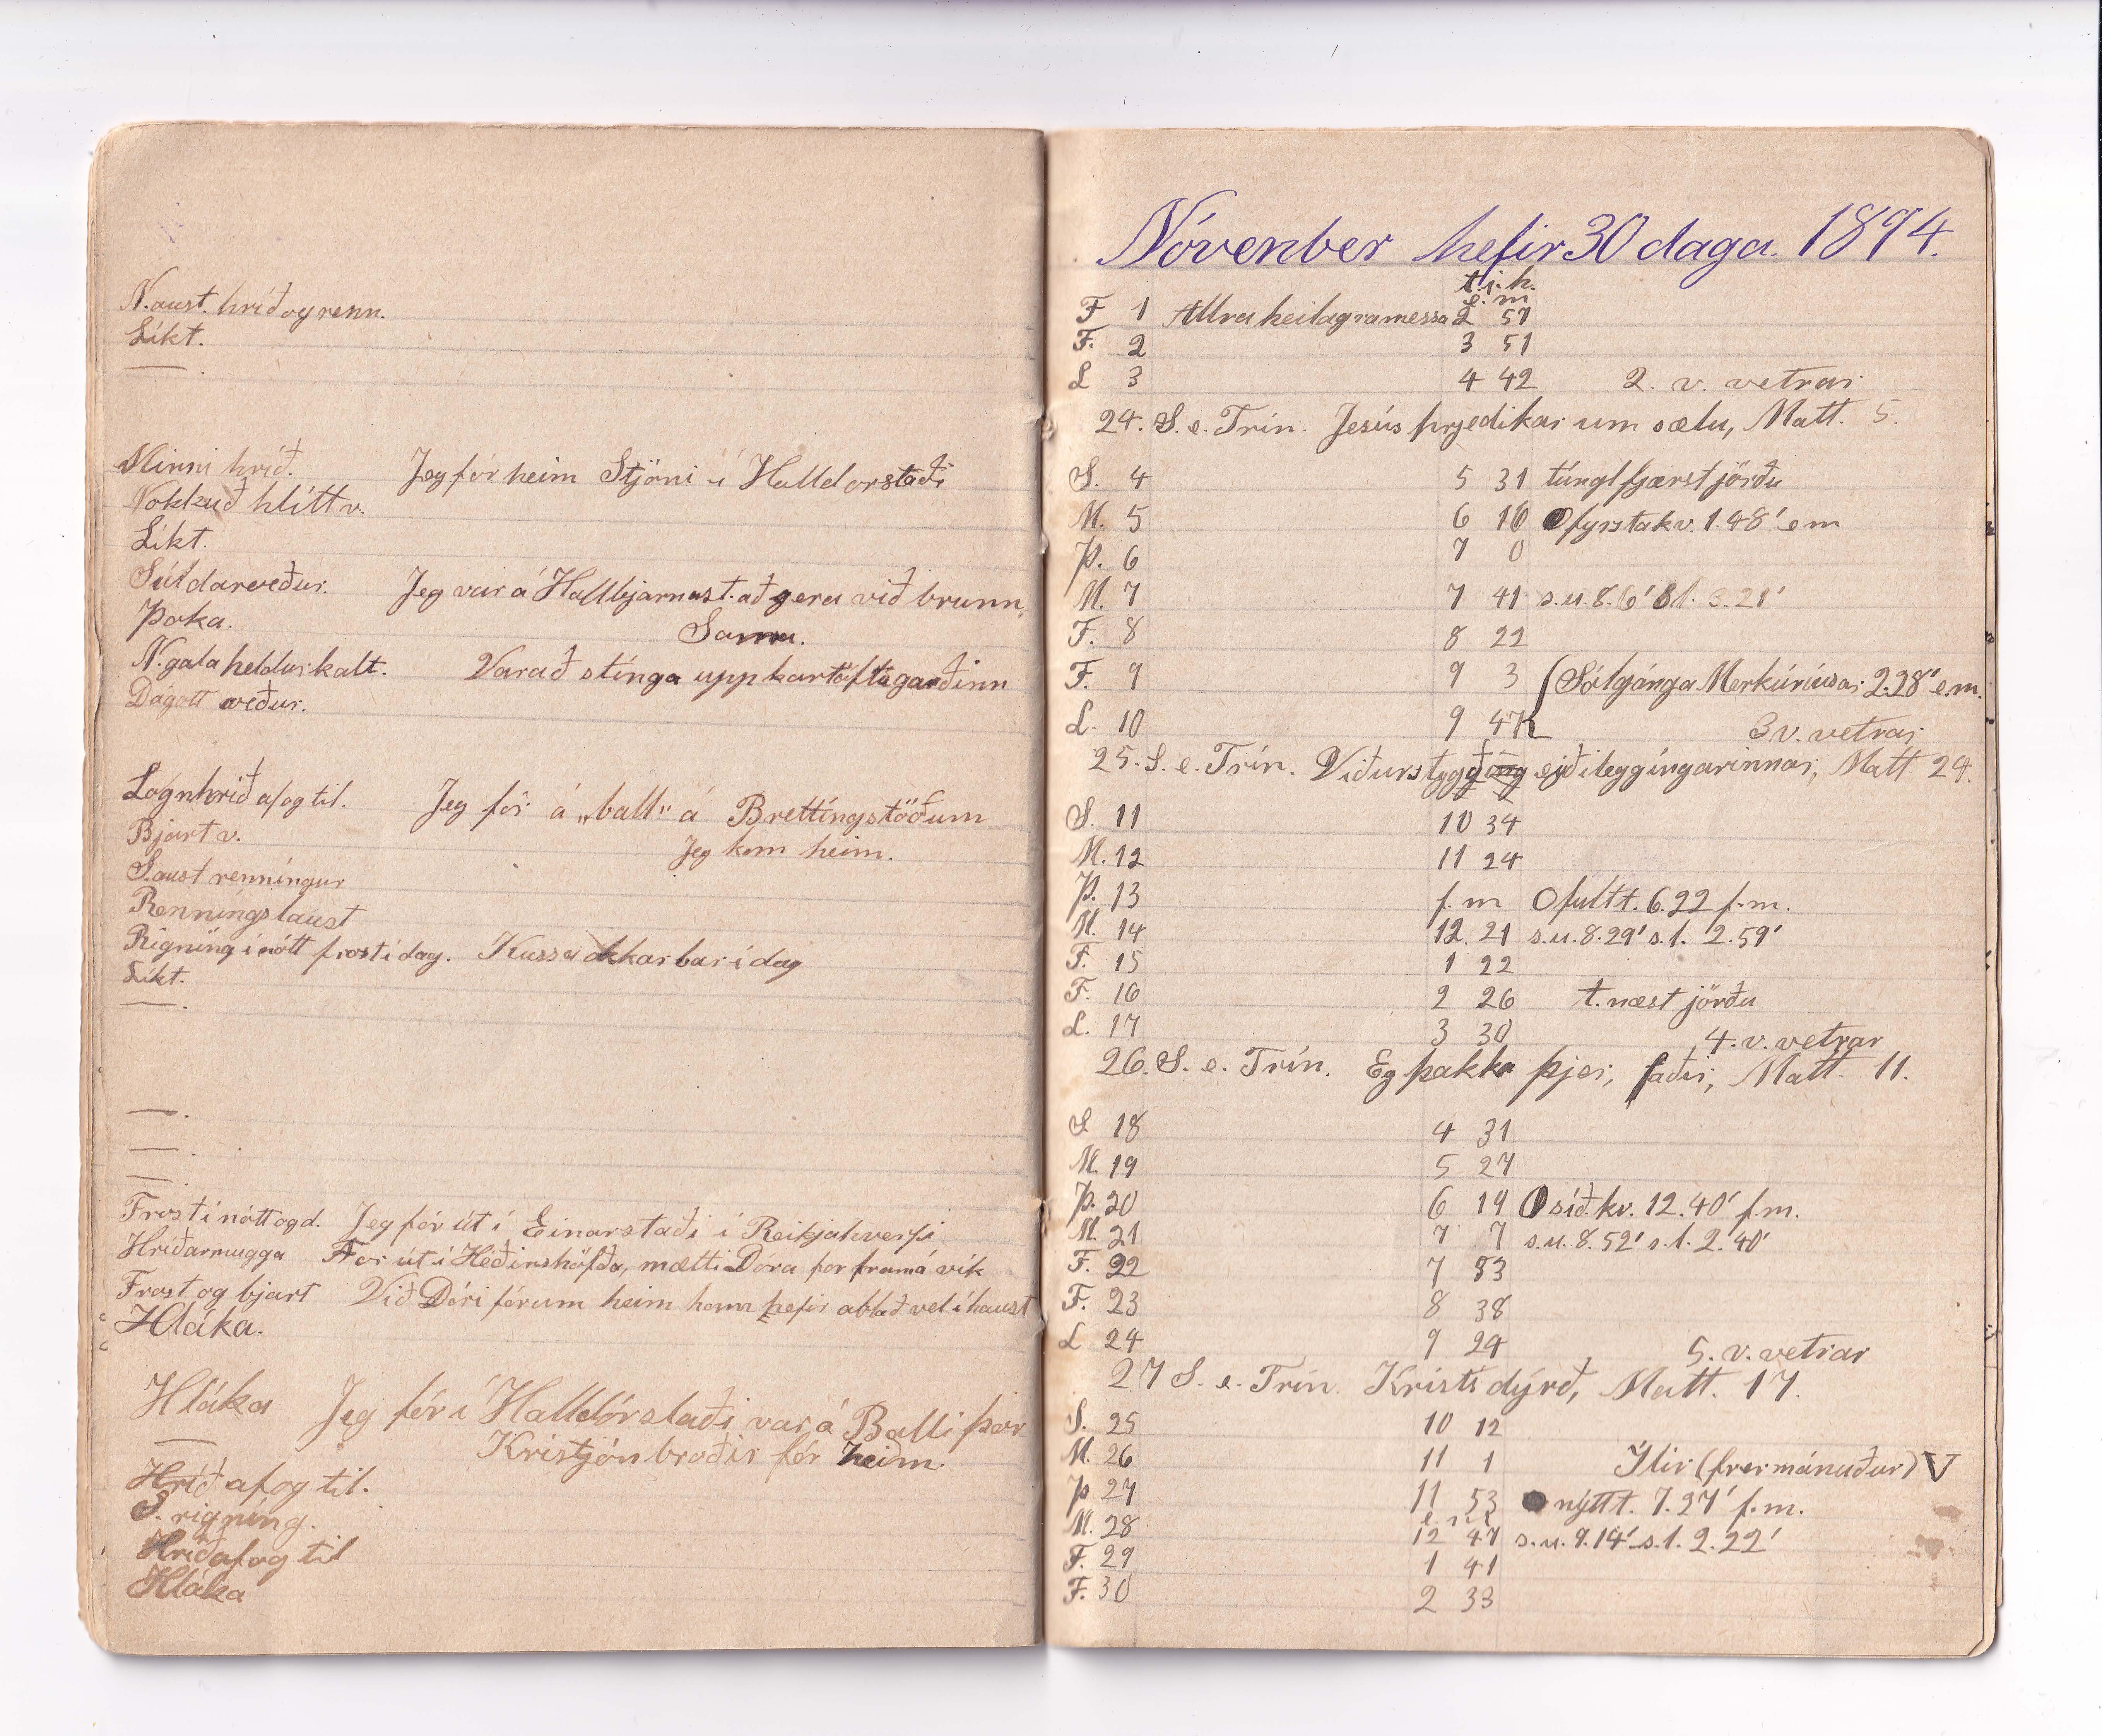 N.aust. hríð og renn.
Líkt.
—.
Minni hríð. Jeg fór heim Stjóni í Halldorstaði
Nokkuð hlítt v.
Líkt.
Suldarveður. Jeg var á Hallbjarnast. að gera við brunn
Þoka. Sama.
N.gola heldur kalt. Var að stínga upp kartöflugarðinn
Dágott veður.
Lognhríð af og til. Jeg fór á „ball" á Brettíngstöðum
Bjart v. Jeg kom heim.
S.aust renníngur
Renníngslaust
Rigníng í nótt frost í dag. Kussa okkar bar í dag
Líkt.
—.
—.
—.
—.
Frost í nótt og d. Jeg fór út í Einarstaði í Reikjahverfi
Hríðarmugga For út í Héðinshöfða, mætti Dóra for fram á vík
Frost og bjart Við Dóri fórum heim hann hefir ablað vel í haust
Hláka.
Hláka Jeg fór í Halldórstaði var á Balli þar
— Kristjón broðir fór heim.
Hríð af og til.
S. rigníng.
Hríð af og til
Hláka
Nóvenber hefir 30 daga. 1894.
t. í. h.
e. m
F 1 Allraheilagramessa 2 57
F. 2 3 51
L 3 4 42 2. v. vetrar
24. S. e. Trín. Jesús prjedikar um sælu, Matt. 5.
S. 4 5 31 túngl fjærst jörðu
M. 5 6 16 fyrsta kv. 1.48' em
Þ. 6 7 0
M. 7 7 41 s.u. 8.6' s.l. 3.21'
F. 8 8 22
F. 9 9 3 (Sólgánga Merkúríusar 2.28' e.m.
L. 10 9 47 3 v. vetrar
25. S. e. Trín. Viðurstyggðíng eyðileggíngarinnar, Matt 24.
S. 11 10 34
M. 12 11 24
Þ. 13 f. m O fullt t. 6.22 f.m.
M. 14 12. 21 s.u. 8.29' s.l. 2.59'
F. 15 1 22
F. 16 2 26 t. næst jörðu
L. 17 3 30 4. v. vetrar
26. S. e. Trín. Eg þakka þjer, faðir, Matt. 11.
S 18 4 31
M. 19 5 27
Þ. 20 6 19 síð. kv. 12.40' f.m.
M. 21 7 7 s.u. 8.52' s.l. 2.40'
F. 22 7 53
F. 23 8 38
L 24 9 24 5. v. vetrar
27 S. e. Trín. Kristi dýrð, Matt. 17.
S. 25 10 12
M. 26 11 1 Ýlir (frermánuður) V
Þ 27 11 53 nýtt t. 7.27' f.m.
e. m
M. 28 12 47 s.u. 9.14' s.l. 2.22'
F. 29 1 41
F. 30 2 33